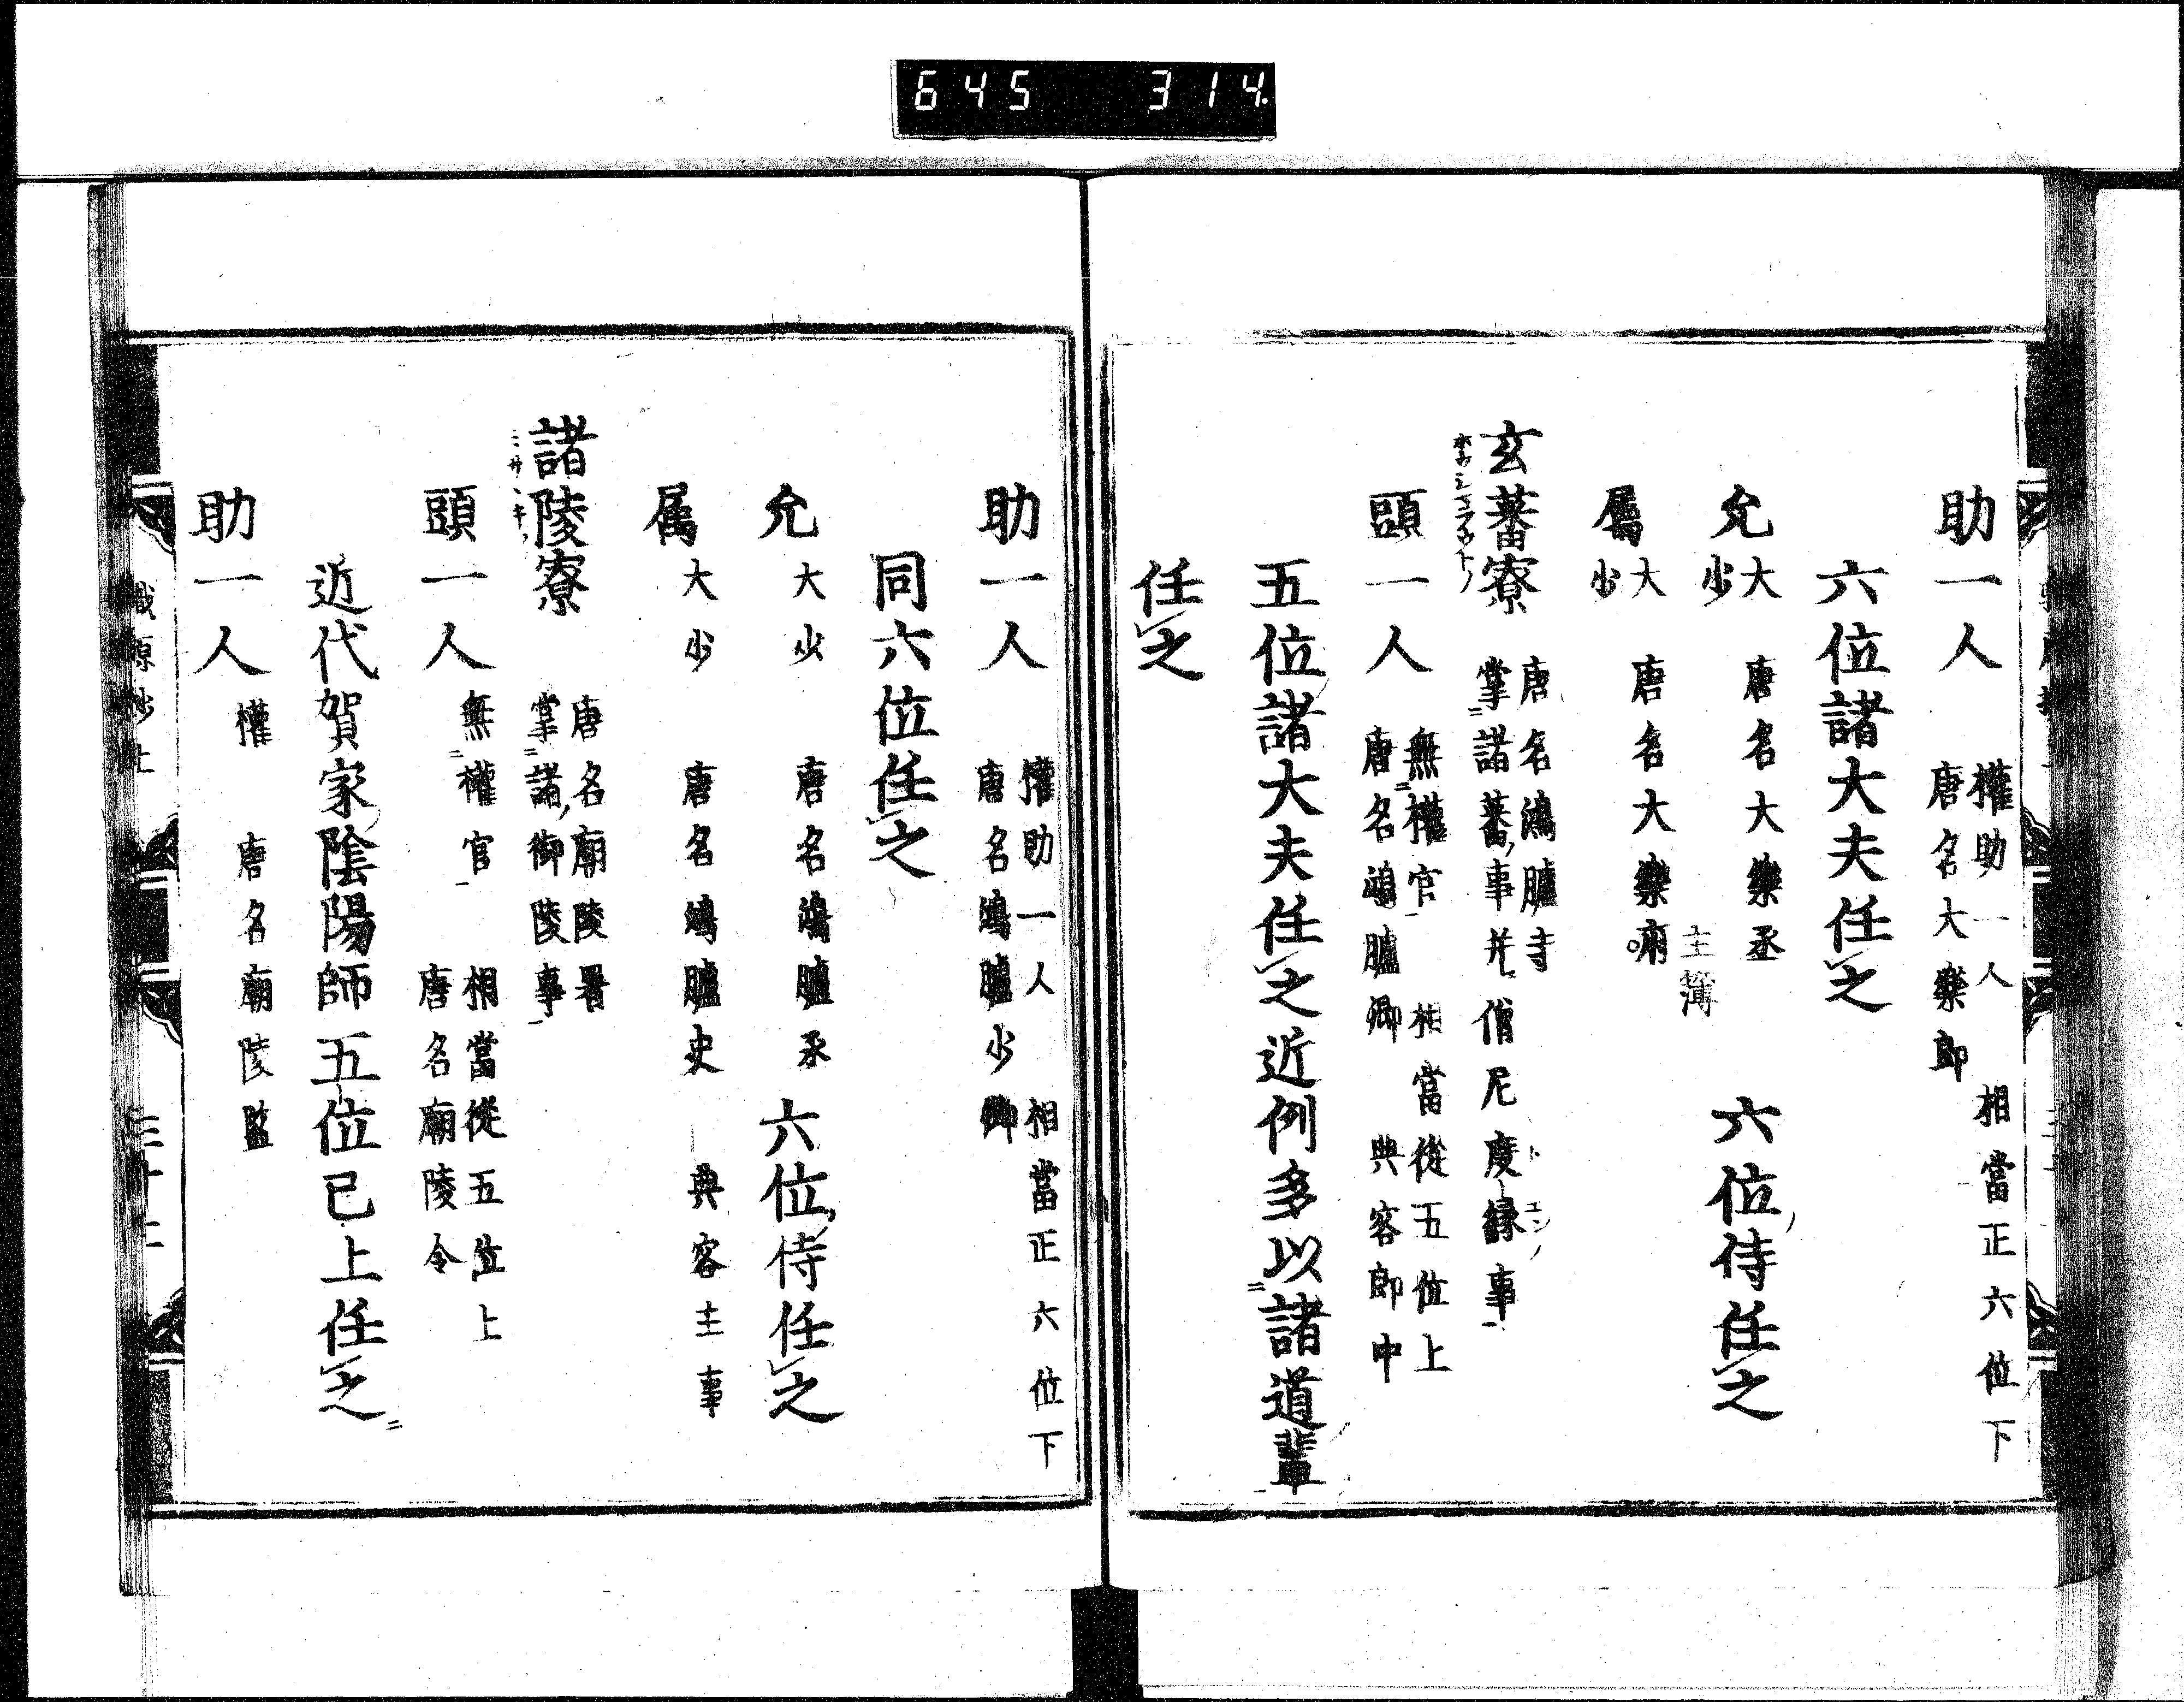 645 314
助一人 權助一人 相當正六位下
唐名大樂郎
六位諸大夫任之
允 大 唐名大樂丞 六位侍任之
少
主簿
屬 大 唐名大樂府
少
玄蕃寮 唐名鴻臚寺
掌諸蕃事并僧尼度緣事
頭一人 無權官 相當從五位上
唐名鴻臚卿 典客郎中
五位諸大夫任之近例多以諸道輩
任之
助一人 權助一人 相當正六位下
唐名鴻臚少卿
同六位任之
允 大少 唐名鴻臚丞 六位侍任之
属 大少 唐名鴻臚史 典客主事
諸陵寮 唐名廟陵署
掌諸御陵事
頭一人 無權官 相當從五位上
唐名廟陵令
近代賀家陰陽師五位已上任之
助一人 權 唐名廟陵監
職原抄上 三十二